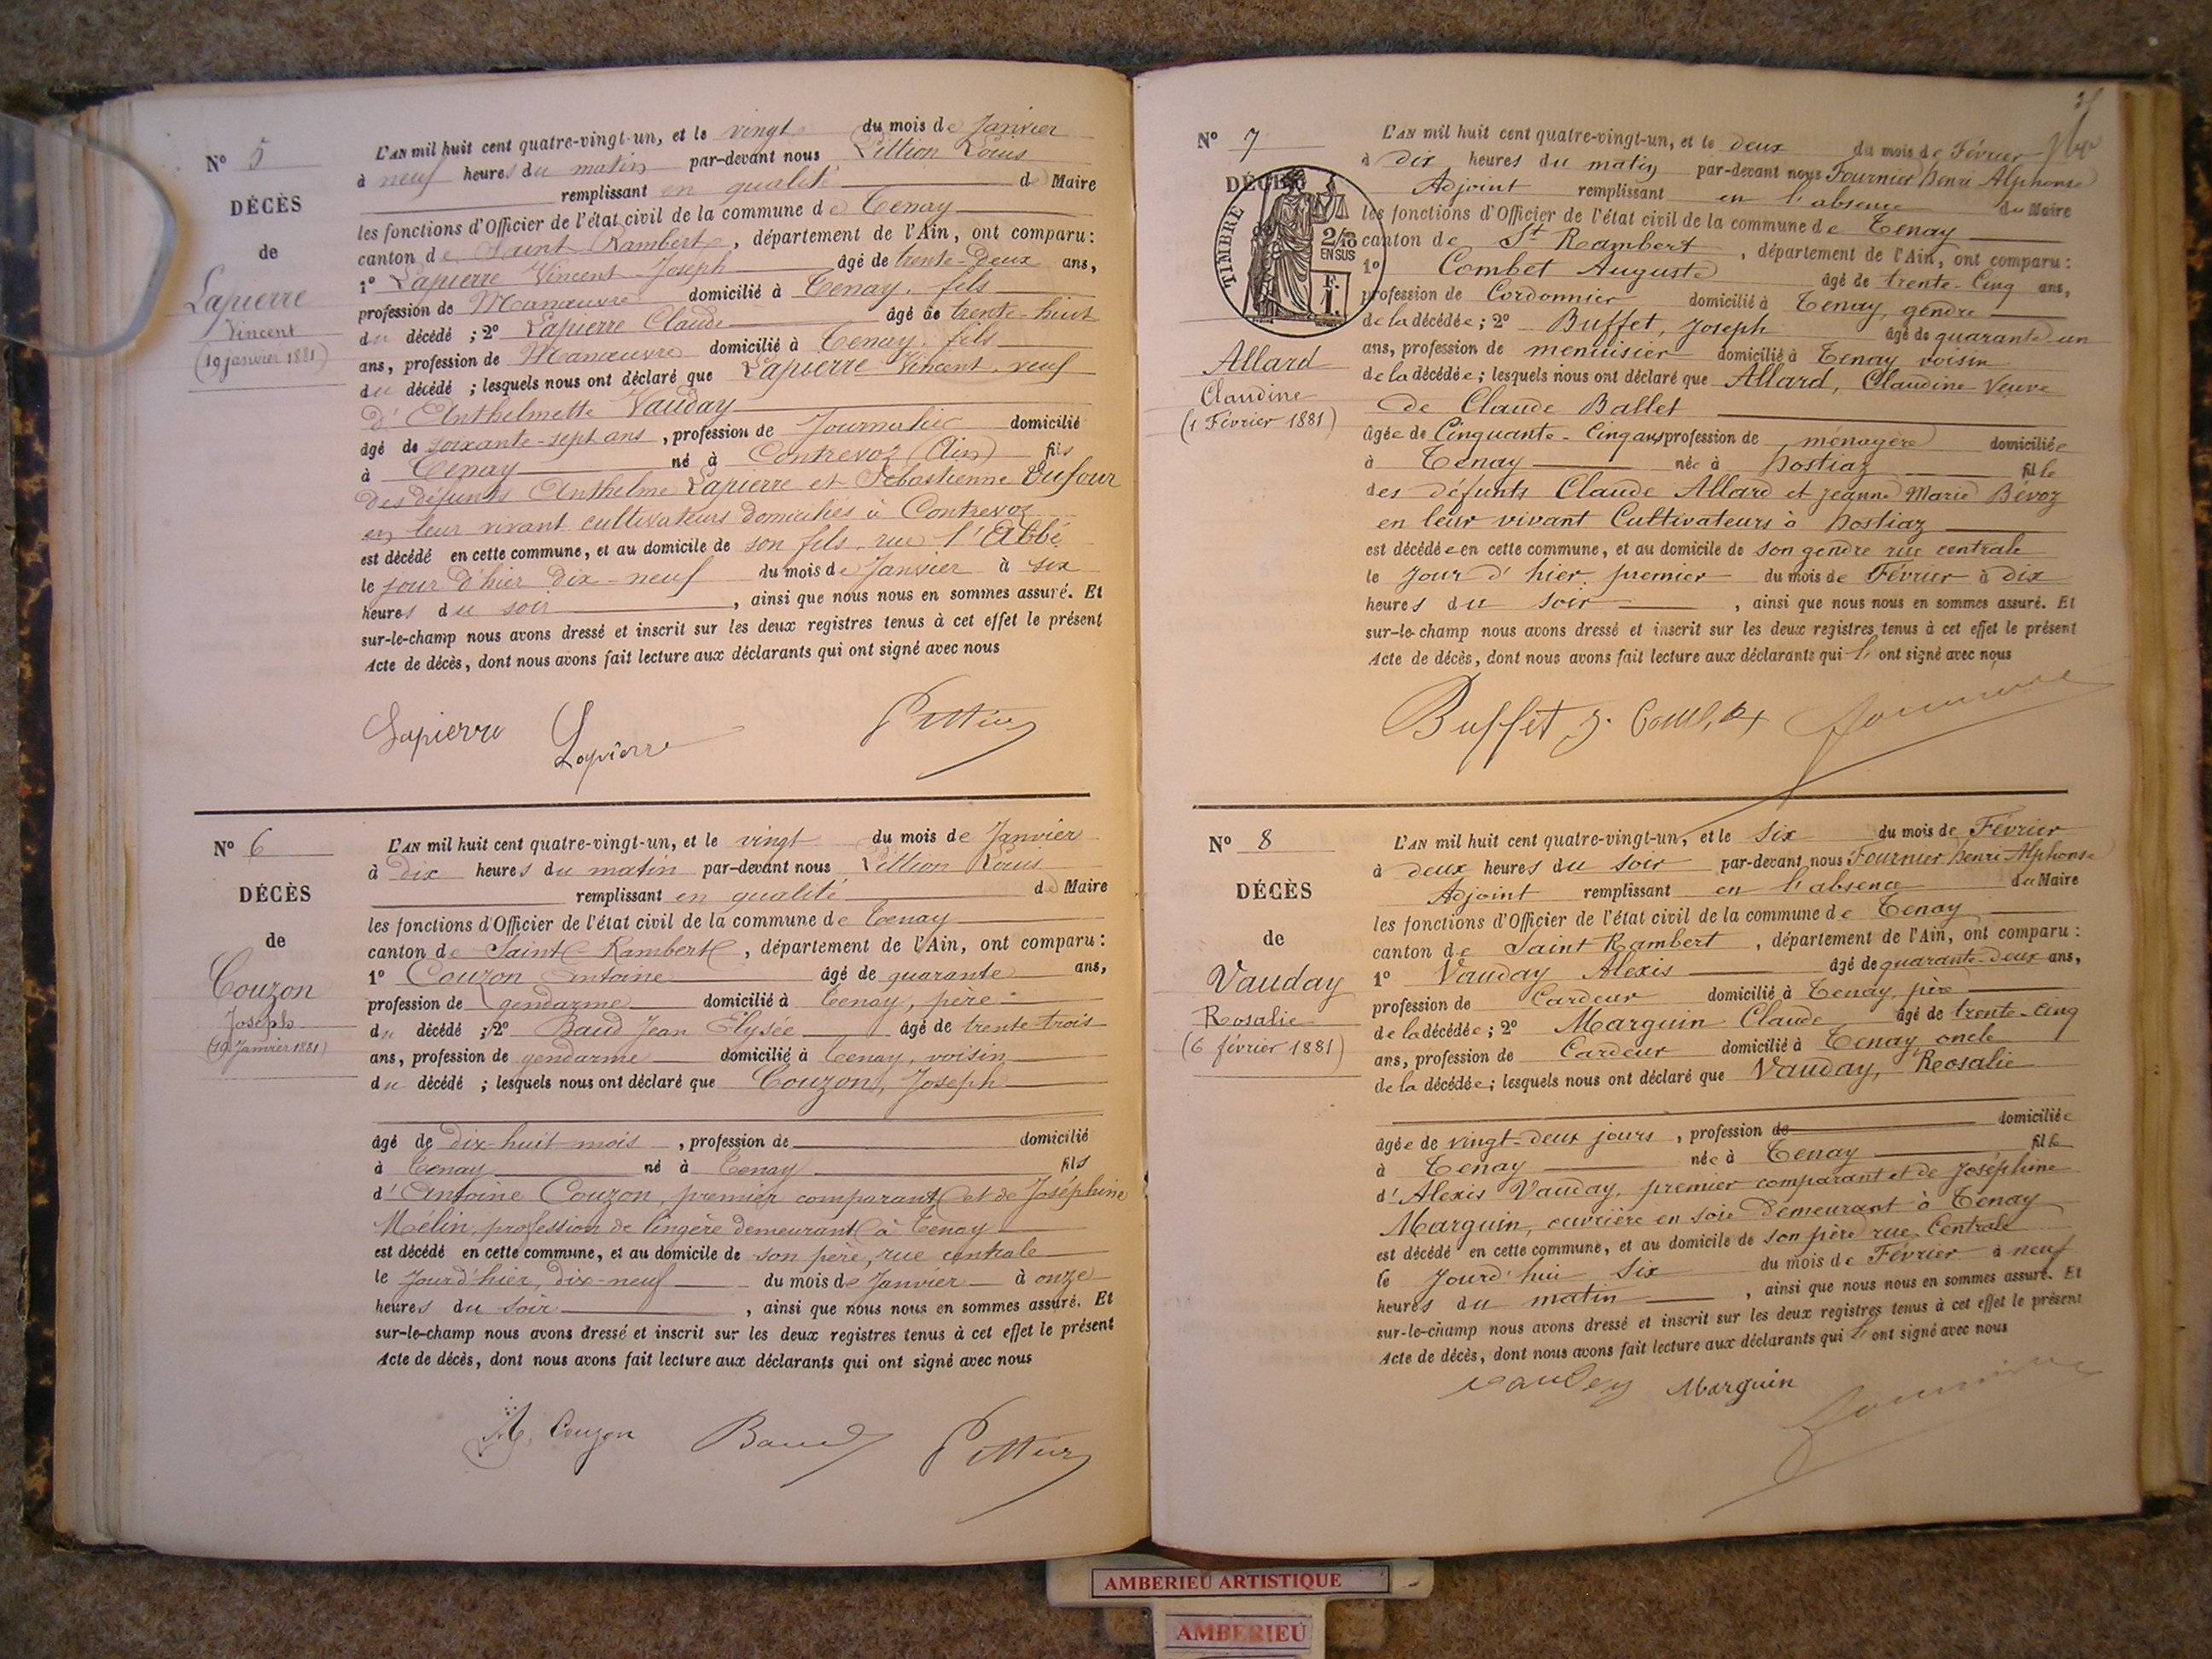 N° 5
DÉCÈS
de
Lapierre
Vincent
(19 janvier 1881)
L'AN mil huit cent quatre-vingt-un, et le vingt du mois de Janvier
à neuf heures du matin par-devant nous Littion Louis
remplissant en qualité de Maire
les fonctions d'Officier de l'état civil de la commune de Tenay
canton de Saint Rambert, département de l'Ain, ont comparu :
1° Lapierre Vincent Joseph âgé de trente-deux ans,
profession de Manœuvre domicilié à Tenay, fils
du décédé ; 2° Lapierre Claude âgé de trente-huit
ans, profession de Manœuvre domicilié à Tenay, fils
du décédé ; lesquels nous ont déclaré que Lapierre Vincent, veuf
d'Anthelmette Vauday
âgé de soixante-sept ans, profession de Journalier domicilié
à Tenay né à Contrevoz (Ain) fils
des défunts Anthelme Lapierre et Sébastienne Dufour
en leur vivant cultivateurs domiciliés à Contrevoz
est décédé en cette commune, et au domicile de son fils, rue l'Abbé
le jour d'hier dix-neuf du mois de Janvier à six
heures du soir, ainsi que nous nous en sommes assuré. Et
sur-le-champ nous avons dressé et inscrit sur les deux registres tenus à cet effet le présent
Acte de décès, dont nous avons fait lecture aux déclarants qui ont signé avec nous
Lapierre Lapierre
N° 6
DÉCÈS
de
Couzon
Joseph
(19 Janvier 1881)
L'AN mil huit cent quatre-vingt-un, et le vingt du mois de Janvier
à dix heures du matin par-devant nous Littion Louis
remplissant en qualité de Maire
les fonctions d'Officier de l'état civil de la commune de Tenay
canton de Saint-Rambert, département de l'Ain, ont comparu :
1° Couzon Antoine âgé de quarante ans,
profession de gendarme domicilié à Tenay, père
du décédé ; 2° Baud Jean Elysée âgé de trente trois
ans, profession de gendarme domicilié à Tenay, voisin
du décédé ; lesquels nous ont déclaré que Couzon, Joseph
âgé de dix-huit mois, profession de domicilié
à Tenay né à Tenay fils
d'Antoine Couzon, premier comparant et de Joséphine
Mélin, profession de lingère demeurant à Tenay
est décédé en cette commune, et au domicile de son père, rue centrale
le Jourd'hier, dix-neuf du mois de Janvier à onze
heures du soir, ainsi que nous nous en sommes assuré. Et
sur-le-champ nous avons dressé et inscrit sur les deux registres tenus à cet effet le présent
Acte de décès, dont nous avons fait lecture aux déclarants qui ont signé avec nous
Couzon Baud
N° 7
DÉCÈS
TIMBRE
2/10
EN SUS
F.
1.
Allard
Claudine
(1 Février 1881)
L'AN mil huit cent quatre-vingt-un, et le deux du mois de Février
à dix heures du matin par-devant nous Fournier henri Alphonse
Adjoint remplissant en l'absence du Maire
les fonctions d'Officier de l'état civil de la commune de Tenay
canton de St Rambert, département de l'Ain, ont comparu :
1° Combet Auguste âgé de trente-Cinq ans,
profession de Cordonnier domicilié à Tenay, gendre
de la décédée ; 2° Buffet, Joseph âgé de quarante un
ans, profession de menuisier domicilié à Tenay voisin
de la décédée ; lesquels nous ont déclaré que Allard, Claudine Veuve
de Claude Ballet
âgée de Cinquante-Cinq ans profession de ménagère domiciliée
à Tenay née à hostiaz fille
des défunts Claude Allard et jeanne Marie Bévoz
en leur vivant Cultivateurs à hostiaz
est décédée en cette commune, et au domicile de son gendre rue centrale
le Jour d'hier premier du mois de Février à dix
heures du soir, ainsi que nous nous en sommes assuré. Et
sur-le-champ nous avons dressé et inscrit sur les deux registres tenus à cet effet le présent
Acte de décès, dont nous avons fait lecture aux déclarants qui l' ont signé avec nous
Buffet J. Combet
N° 8
DÉCÈS
de
Vauday
Rosalie
(6 février 1881)
L'AN mil huit cent quatre-vingt-un, et le Six du mois de Février
à deux heures du soir par-devant nous Fournier henri Alphonse
Adjoint remplissant en l'absence du Maire
les fonctions d'Officier de l'état civil de la commune de Tenay
canton de Saint Rambert, département de l'Ain, ont comparu :
1° Vauday Alexis âgé de quarante-deux ans,
profession de Cardeur domicilié à Tenay, père
de la décédée ; 2° Marguin Claude âgé de trente-cinq
ans, profession de Cardeur domicilié à Tenay, oncle
de la décédée ; lesquels nous ont déclaré que Vauday, Rosalie
âgée de vingt-deux jours, profession de domiciliée
à Tenay née à Tenay fille
d'Alexis Vauday, premier comparant et de Joséphine
Marguin, ouvrière en soie demeurant à Tenay
est décédé en cette commune, et au domicile de son père rue Centrale
le Jourd'hui Six du mois de Février à neuf
heures du matin, ainsi que nous nous en sommes assuré. Et
sur-le-champ nous avons dressé et inscrit sur les deux registres tenus à cet effet le présent
Acte de décès, dont nous avons fait lecture aux déclarants qui l' ont signé avec nous
Vauday Marguin
AMBERIEU ARTISTIQUE
AMBERIEU